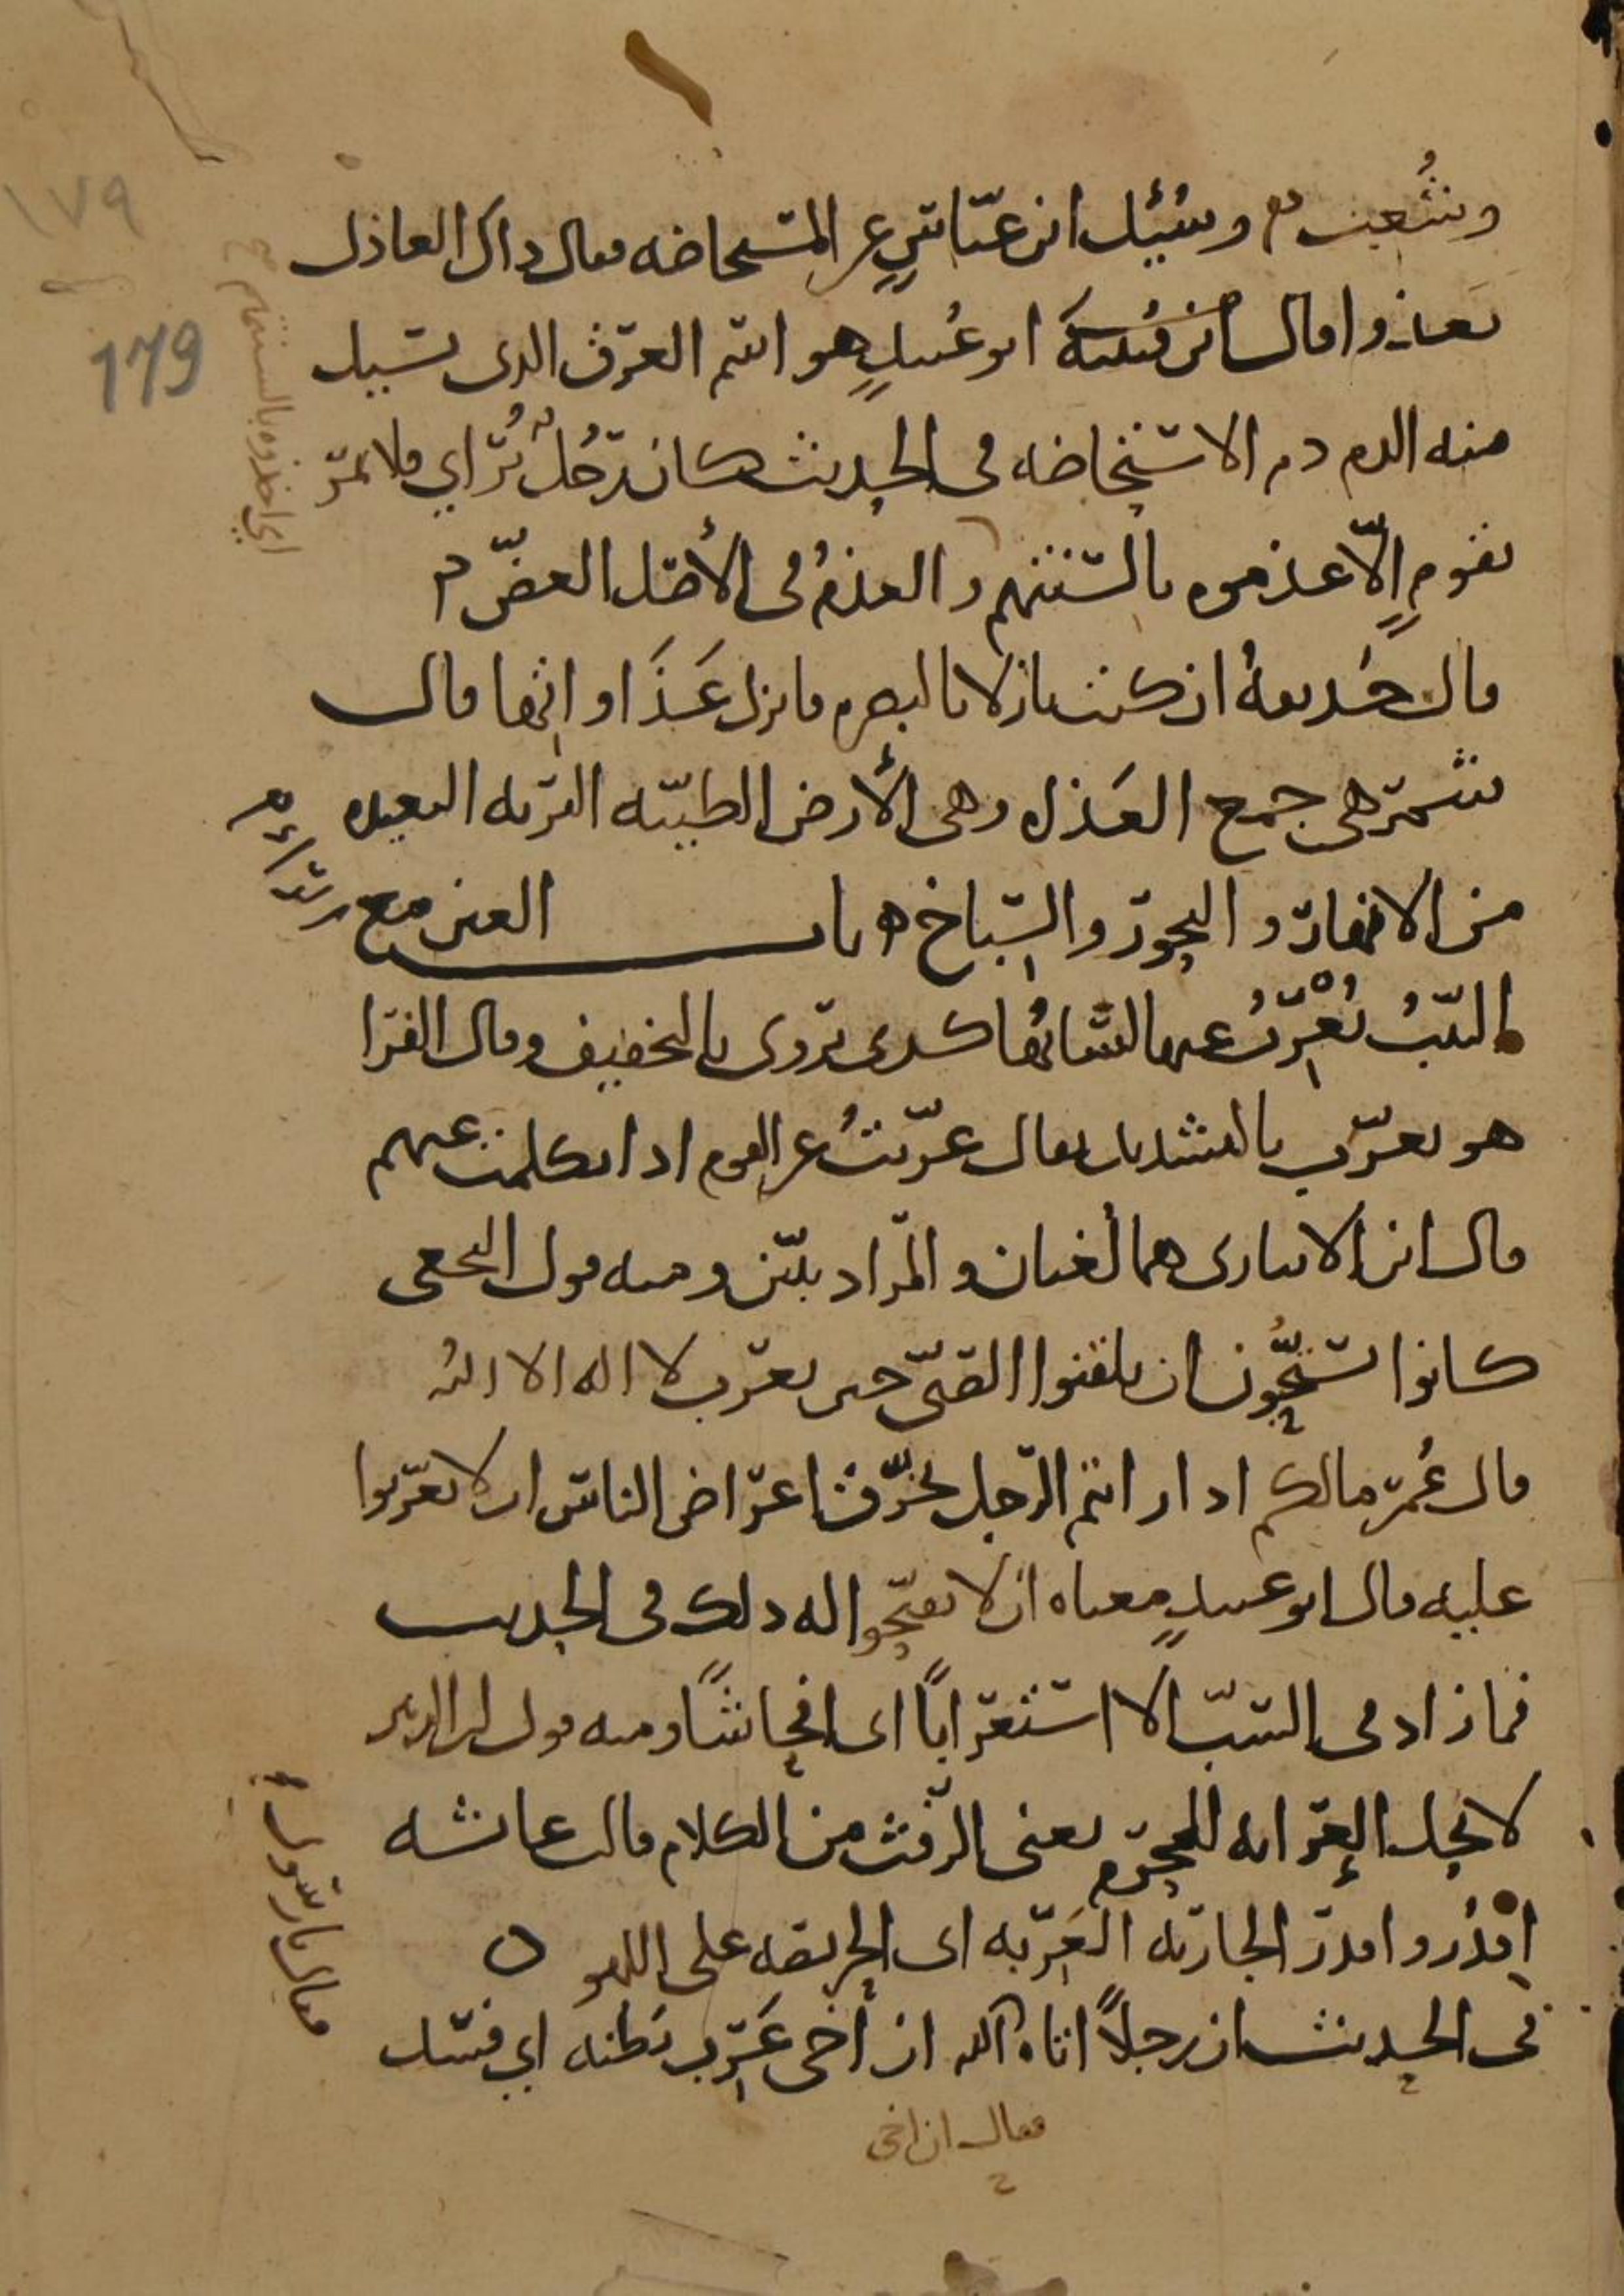 وشعبت م وسئل ابن عباس عن المستحاضه فقال ذاك العاذل
يعذوا قال ابن قتيبة ابو عبيد هو اسم العرق الذي يسيل
منه الدم دم الاستحاضه في الحديث كان رجل يرائي فلا يمر
بقوم إلا عذموه بالسنتهم والعذم في الأصل العض م
قال حذيفة ان كنت نازلا بالبصره فانزل عذاواتها قال
شمر هي جمع العذاه وهي الأرض الطيبه التربه البعيده
من الانهار والبحور والسباخ ه باب العين مع
الثيب يُعْرِبُ عنها لسانها كذى يروى بالتخفيف وقال الفرا
هو يعرّب بالتشديد يقال عرّبتُ عن القوم اذا تكلمت عنهم
قال ابن الانباري هما لغتان والمراد يبيّن ومنه قول النخعي
كانوا يستحبّون ان يلقنوا الصبيّ حين يعرب لا اله الا الله
قال عُمر مالكم اذا رايتم الرجل يخرّق اعراض الناس ان لا تعرّبوا
عليه قال ابو عبيدٍ معناه ان لا تقبّحوا له ذلك في الحديث
فما زاد في السبّ الا استعراباً اى افحاشاً ومنه قول ابن الزبير
لا تحل العِرابه للمحرم يعنى الرّفث من الكلام قالت عائشه
اقدُروا قدر الجاريه العَرِبه اى الحريصه على اللهو ه
في الحديث ان رجلاً اتاه الله ان أخي عَرِب بَطنه اي فسد
فقال ان اخي
الراء م
اي اخذوه بالسنتهم ح
فقال يا رسول الله
١٧٩
179